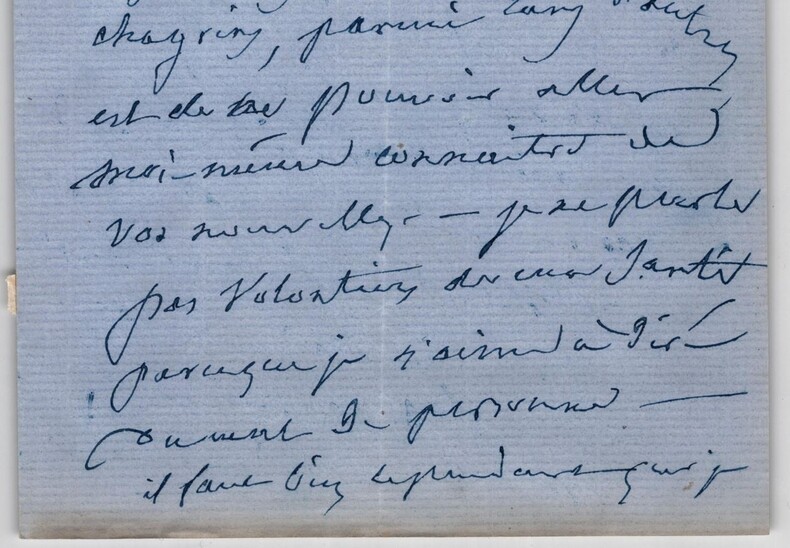 chagrins, parmi tans d'autres
est de ne pouvoir aller
moi-même connaitre de
vos nouvelles — je ne parle
pas volontiers de ma santé
parceque je n'aime à
de personne —
il faut bien cependant que je